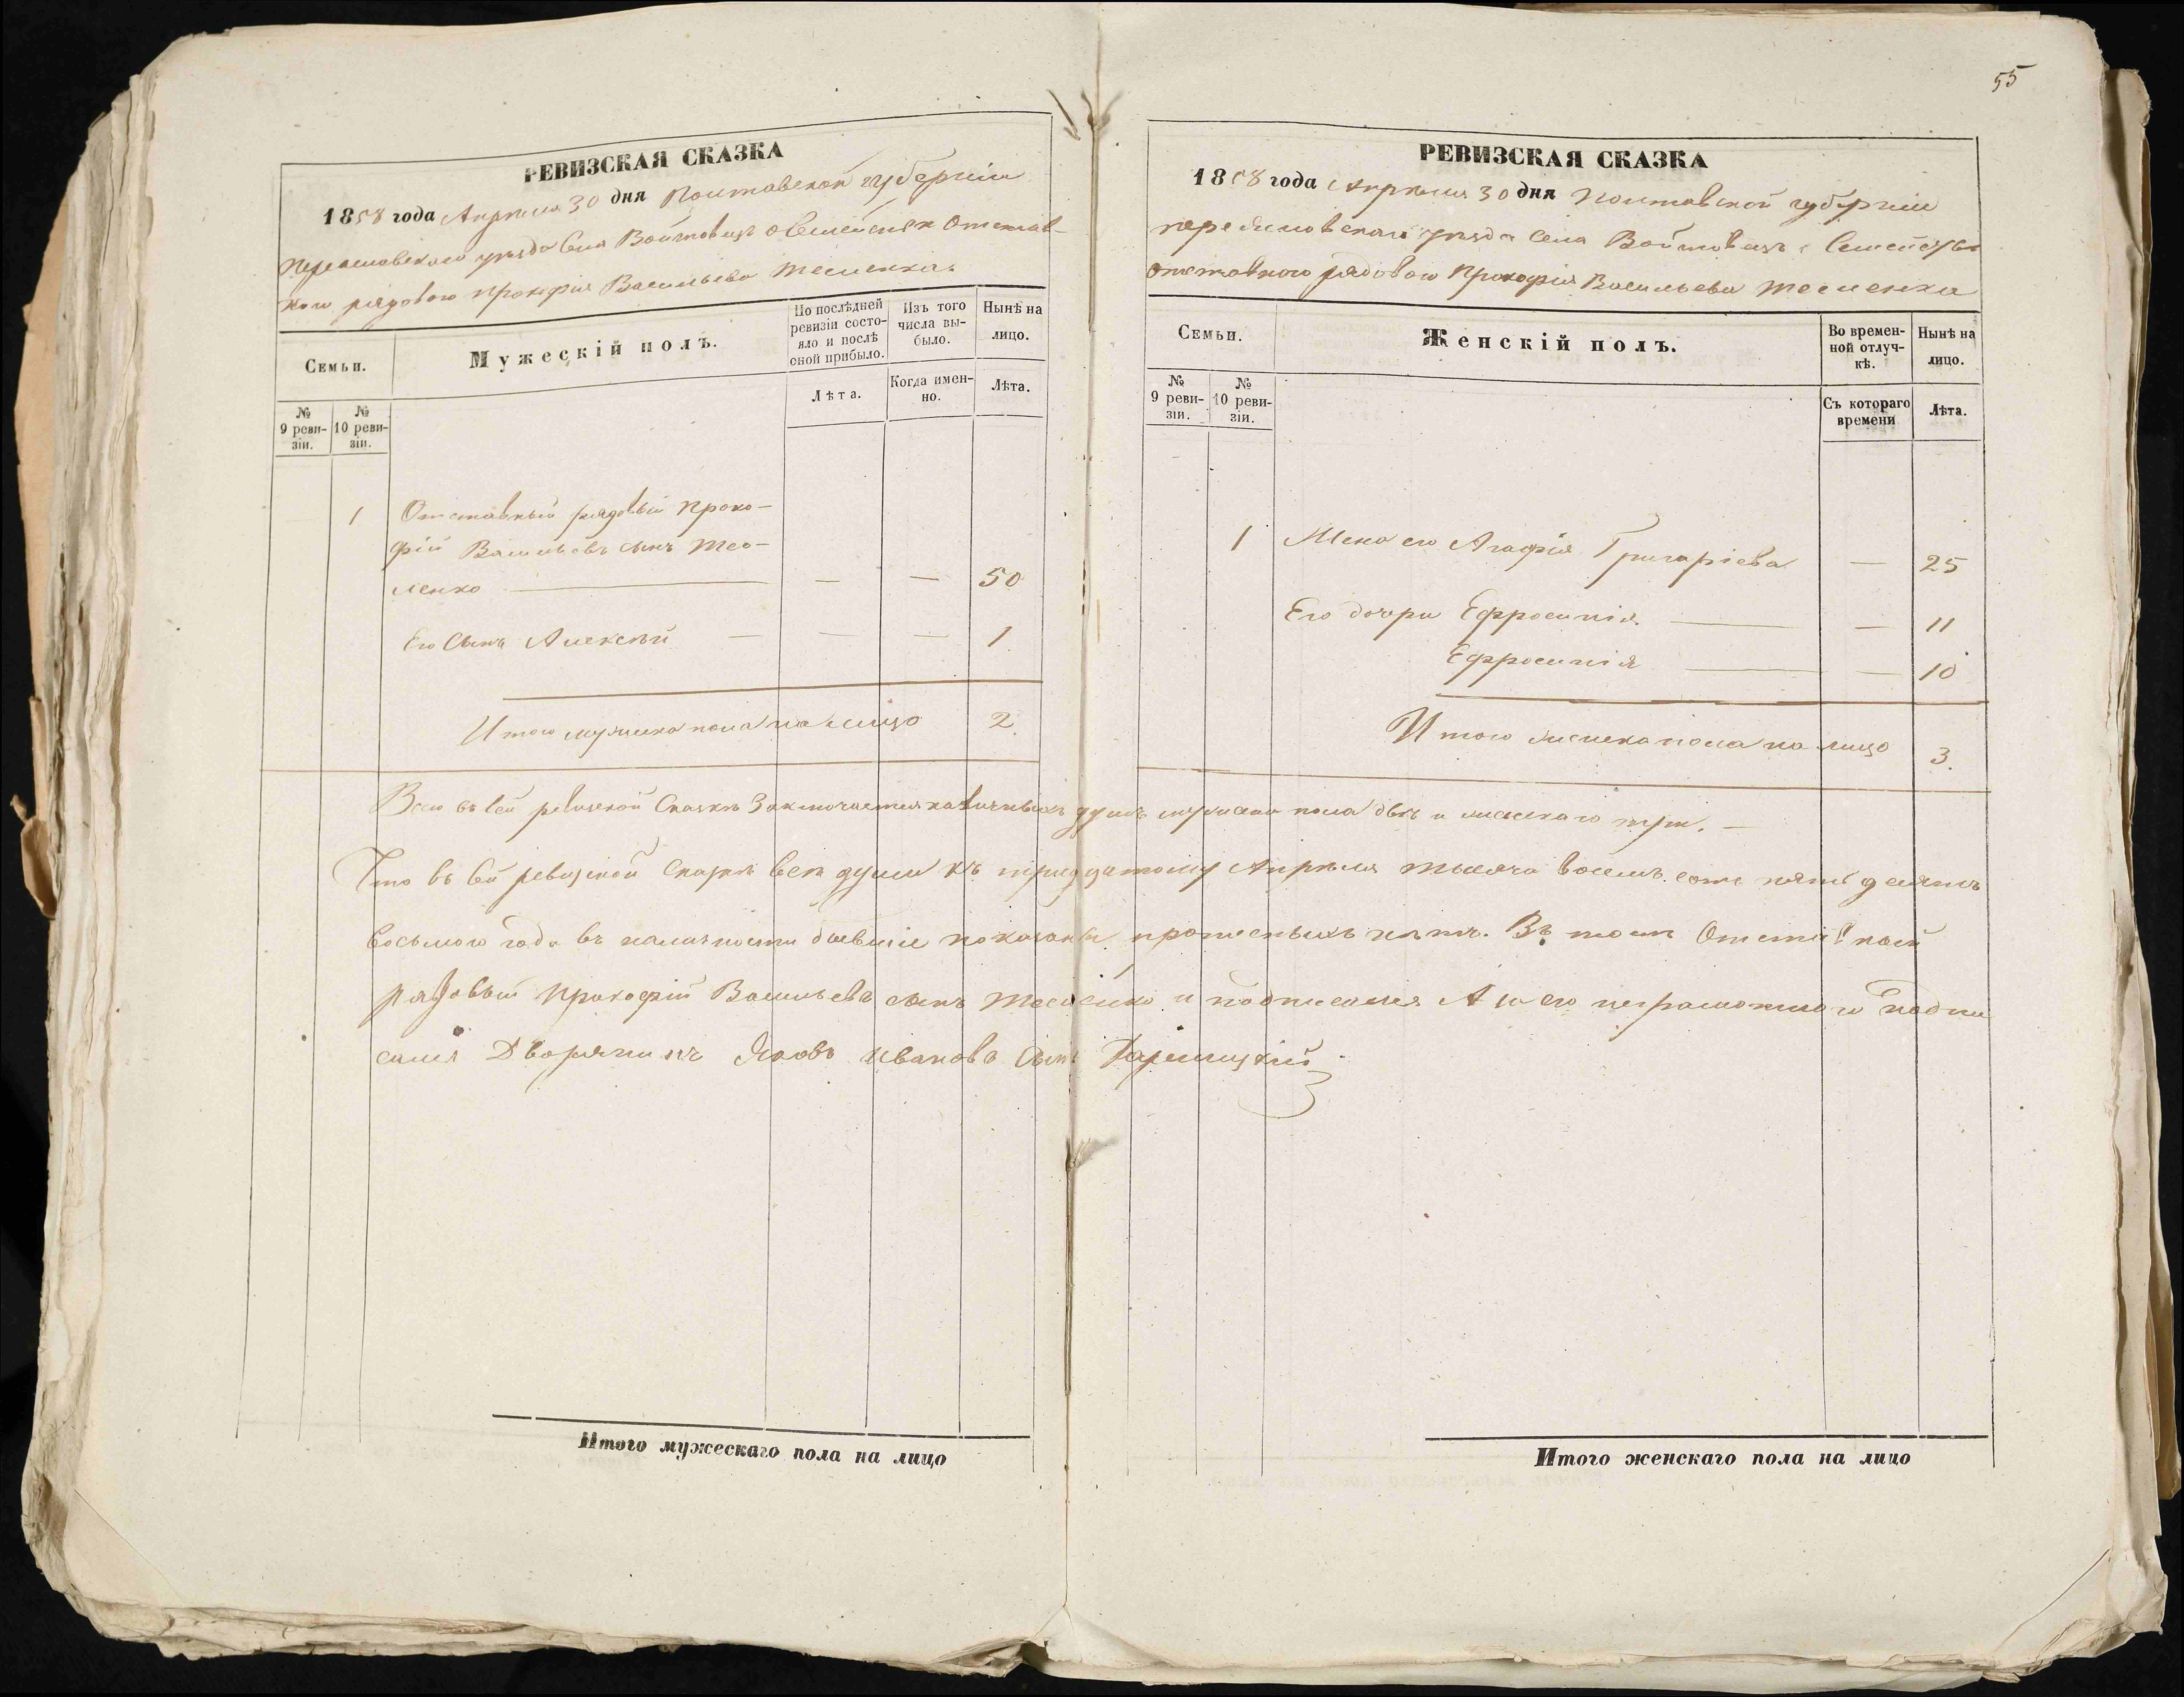 55
РЕВИЗСКАЯ СКАЗКА
1858 года Апреля 30 дня Полтавской губернiи
Переяславскаго уезда Села Войтовецъ о Семействе Отстав-
ного рядового Прокофiя Васильева Тесленка.
Семьи.
Мужескiй полъ.
По послѣдней ревизiи состо-
яло и послѣ
оной прибыло.
Изъ того
числа вы-
было.
Нынѣ на
лицо.
№
9 реви-
зiи.
№
10 реви-
зiи.
Лѣта.
Когда имен-
но.
Лѣта.
1 Отставный рядовый Проко-
фiй Васильевъ сынъ Тес-
ленко — — 50
Его Сынъ Алексѣй — — — 1
Итого мужеска пола на лицо 2.
РЕВИЗСКАЯ СКАЗКА
1858 года Апреля 30 дня Полтавской губернiи
переяславскаго уезда Села Войтовецъ о Семействе
отставного рядового Прокофiя Васильева Тесленка
Семьи.
Женскiй полъ.
Во времен-
ной отлуч-
кѣ.
Нынѣ на
лицо.
№
9 реви-
зiи.
№
10 реви-
зiи.
Съ котораго
времени
Лѣта.
1 Жена его Агафiя Григорiева — 25
Его дочри Ефросинiя — — 11
Ефросинiя — — 10
Итого женска пола на лицо 3.
Всего въ Сей ревизской Сказкѣ Заключается наличныхъ душъ мужеска пола двѣ и женскаго три. —
Что въ Сей ревизской Сказкѣ всѣ души къ тридцатому Апрѣля тысяча восемь сотъ пятьдесятъ
восьмого года въ наличности бывшiе показаны прописныхъ нѣтъ. Въ томъ Отставной
рядовый Прокофiй Васильевъ сынъ Тесленко и подписался А за его неграмотного подпи
сался Дворянинъ Яковъ Ивановъ Сынъ
Итого мужескаго пола на лицо
Итого женскаго пола на лицо